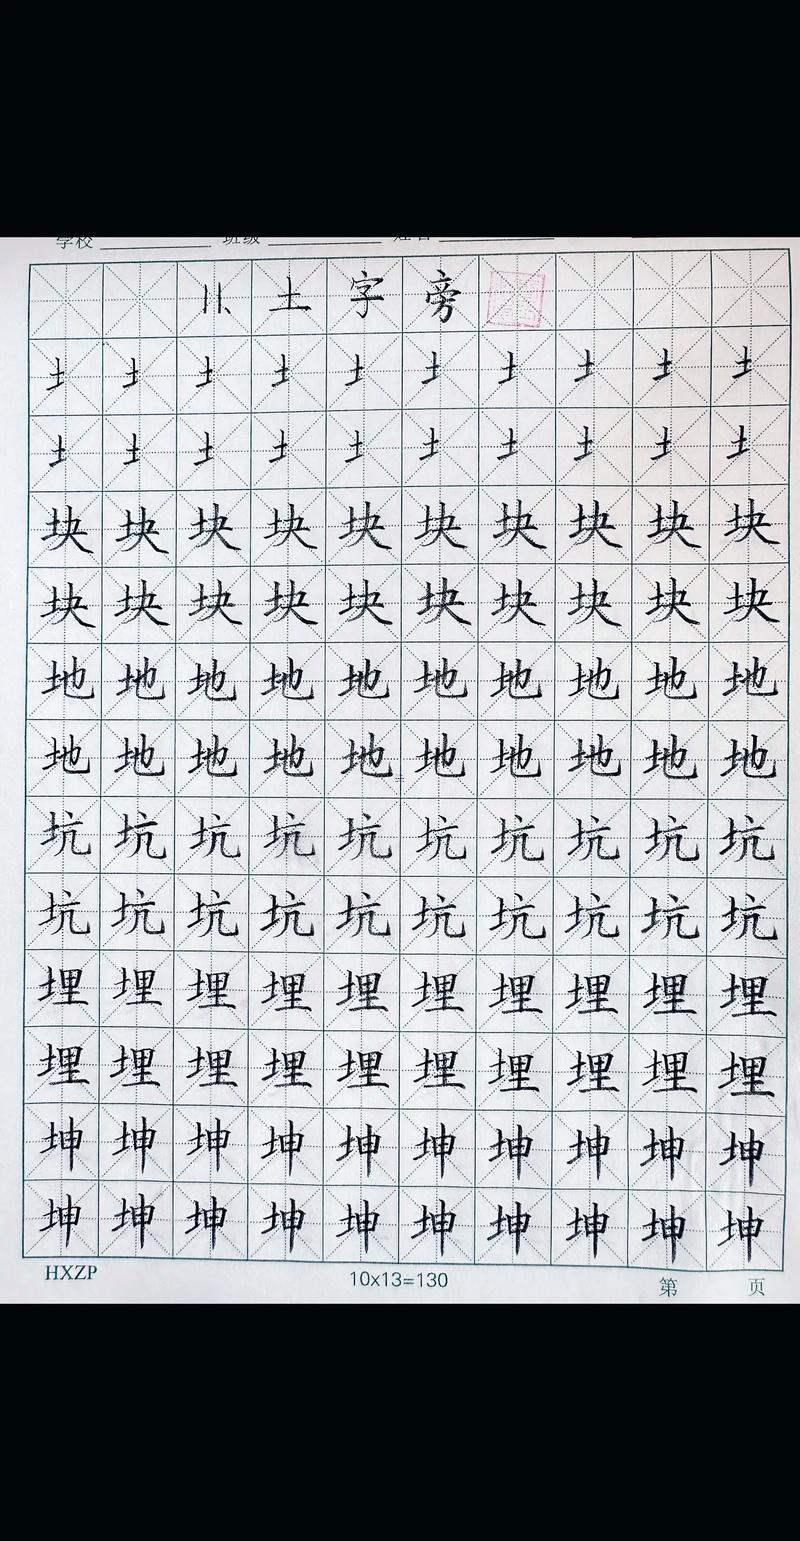 学校 班级 姓名
11、土字旁
土土土土土土土土土土
土土土土土土土土土土
块块块块块块块块块块
块块块块块块块块块块
地地地地地地地地地地
地地地地地地地地地地
坑坑坑坑坑坑坑坑坑坑
坑坑坑坑坑坑坑坑坑坑
埋埋埋埋埋埋埋埋埋埋
埋埋埋埋埋埋埋埋埋埋
坤坤坤坤坤坤坤坤坤坤
坤坤坤坤坤坤坤坤坤坤
HXZP 10x13=130 第 页